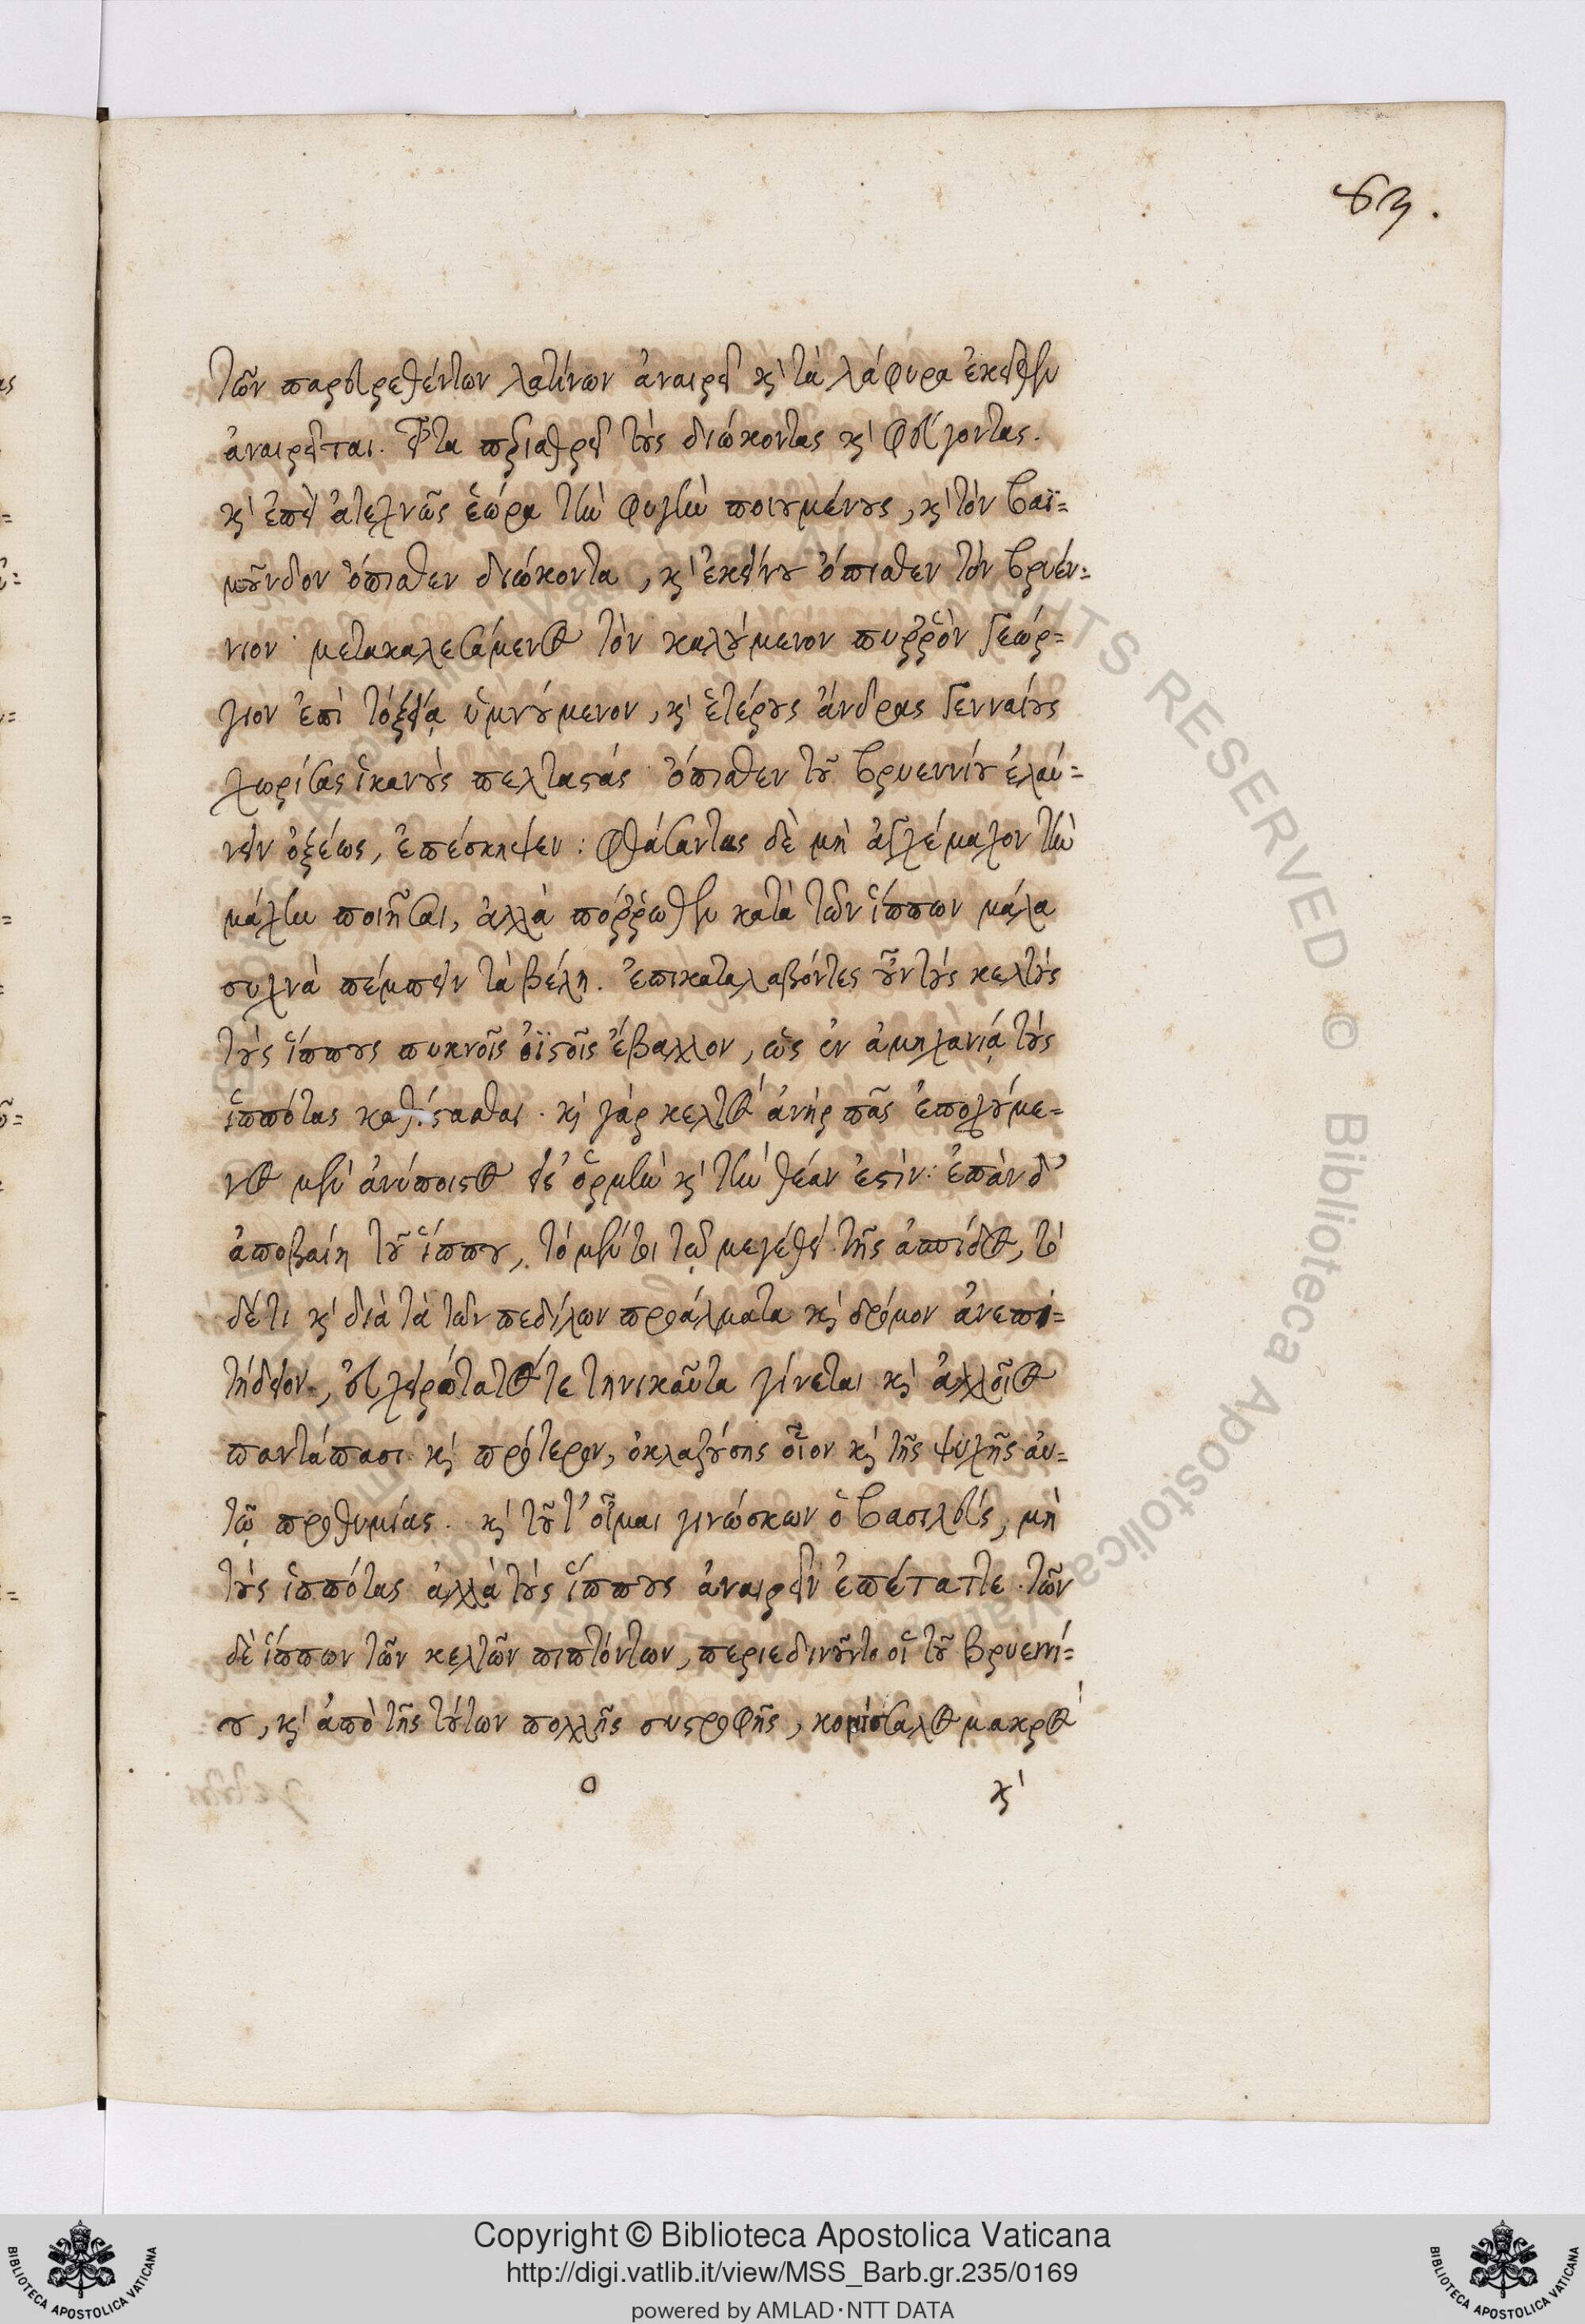 83.
τῶν παρευρεθέντων λατίνων ἀναιρεῖ κ' τὰ λάφυρα ἐκεῖθεν
ἀναιρεῖται. εἶτα περιαθρεῖ τοὺς διώκοντας κ' φεύγοντας.
κ' ἐπεὶ ἀτεχνῶς ἑώρα τὴν φυγὴν ποιουμένους, κ' τὸν βαϊ=
μοῦνδον ὄπισθεν διώκοντα, κ' ἐκείνου ὄπισθεν τὸν βρυέν=
νιον μετακαλεσάμενος τὸν καλούμενον πυῤῥὸν Γεώρ=
γιον ἐπὶ τοξείᾳ ὑμνούμενον, κ' ἑτέρους ἄνδρας Γενναίους
χωρίσας ἱκανοὺς πελταστάς ὄπισθεν τοῦ βρυεννίου ἐλαύ=
νειν ὀξέως, ἐπέσκηψεν: φθάσαντας δὲ μὴ ἀγχέμαχον τὴν
μάχην ποιῆσαι, ἀλλὰ πόῤῥωθεν κατὰ τῶν ἵππων μάλα
συχνὰ πέμπειν τὰ βέλη. ἐπικαταλαβόντες οὖν τοὺς κελτοὺς
τοὺς ἵππους πυκνοῖς ὀϊστοῖς ἔβαλλον, ὡς ἐν ἀμηχανίᾳ τοὺς
ἱππότας καθίστασθαι. κ' γὰρ κελτὸς ἀνὴρ πᾶς ἐποχούμε=
νος μὲν ἀνύποιστος εἰς ὁρμὴν κ' τὴν θέαν ἐστίν: ἐπὰν δ'
ἀποβαίη τοῦ ἵππου, τὸ μέν τι τῷ μεγέθει τῆς ἀσπίδος, τὸ
δέ τι κ' διὰ τὰ τῶν πεδίλων προάλματα κ' δρόμον ἀνεπι=
τήδειον, εὐχειρότατός τε τηνικαῦτα γίνεται κ' ἀλλοῖος
παντάπασι κ' πρότερον, ὀκλαζούσης οἷον κ' τῆς ψυχῆς αὐ=
τῷ προθυμίας. κ' τοῦτ' οἶμαι γινώσκων ὁ βασιλεὺς, μὴ
τοὺς ἱππότας ἀλλὰ τοὺς ἵππους ἀναιρεῖν ἐπέταττε. τῶν
δὲ ἵππων τῶν κελτῶν πιπτόντων, περιεδινοῦντο οἱ τοῦ βρυεννί=
ου, κ' ἀπὸ τῆς τούτων πολλῆς συστροφῆς, κονίσσαλος μακρὸς
κ'
Copyright © Biblioteca Apostolica Vaticana
http://digi.vatlib.it/view/MSS_Barb.gr.235/0169
powered by AMLAD·NTT DATA